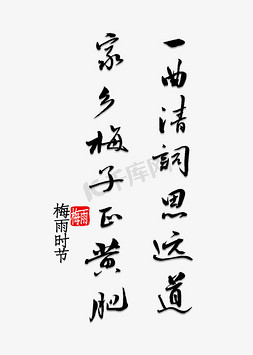 一曲清詞思远道
家乡梅子正黄肥
梅雨时节
梅雨
千库网